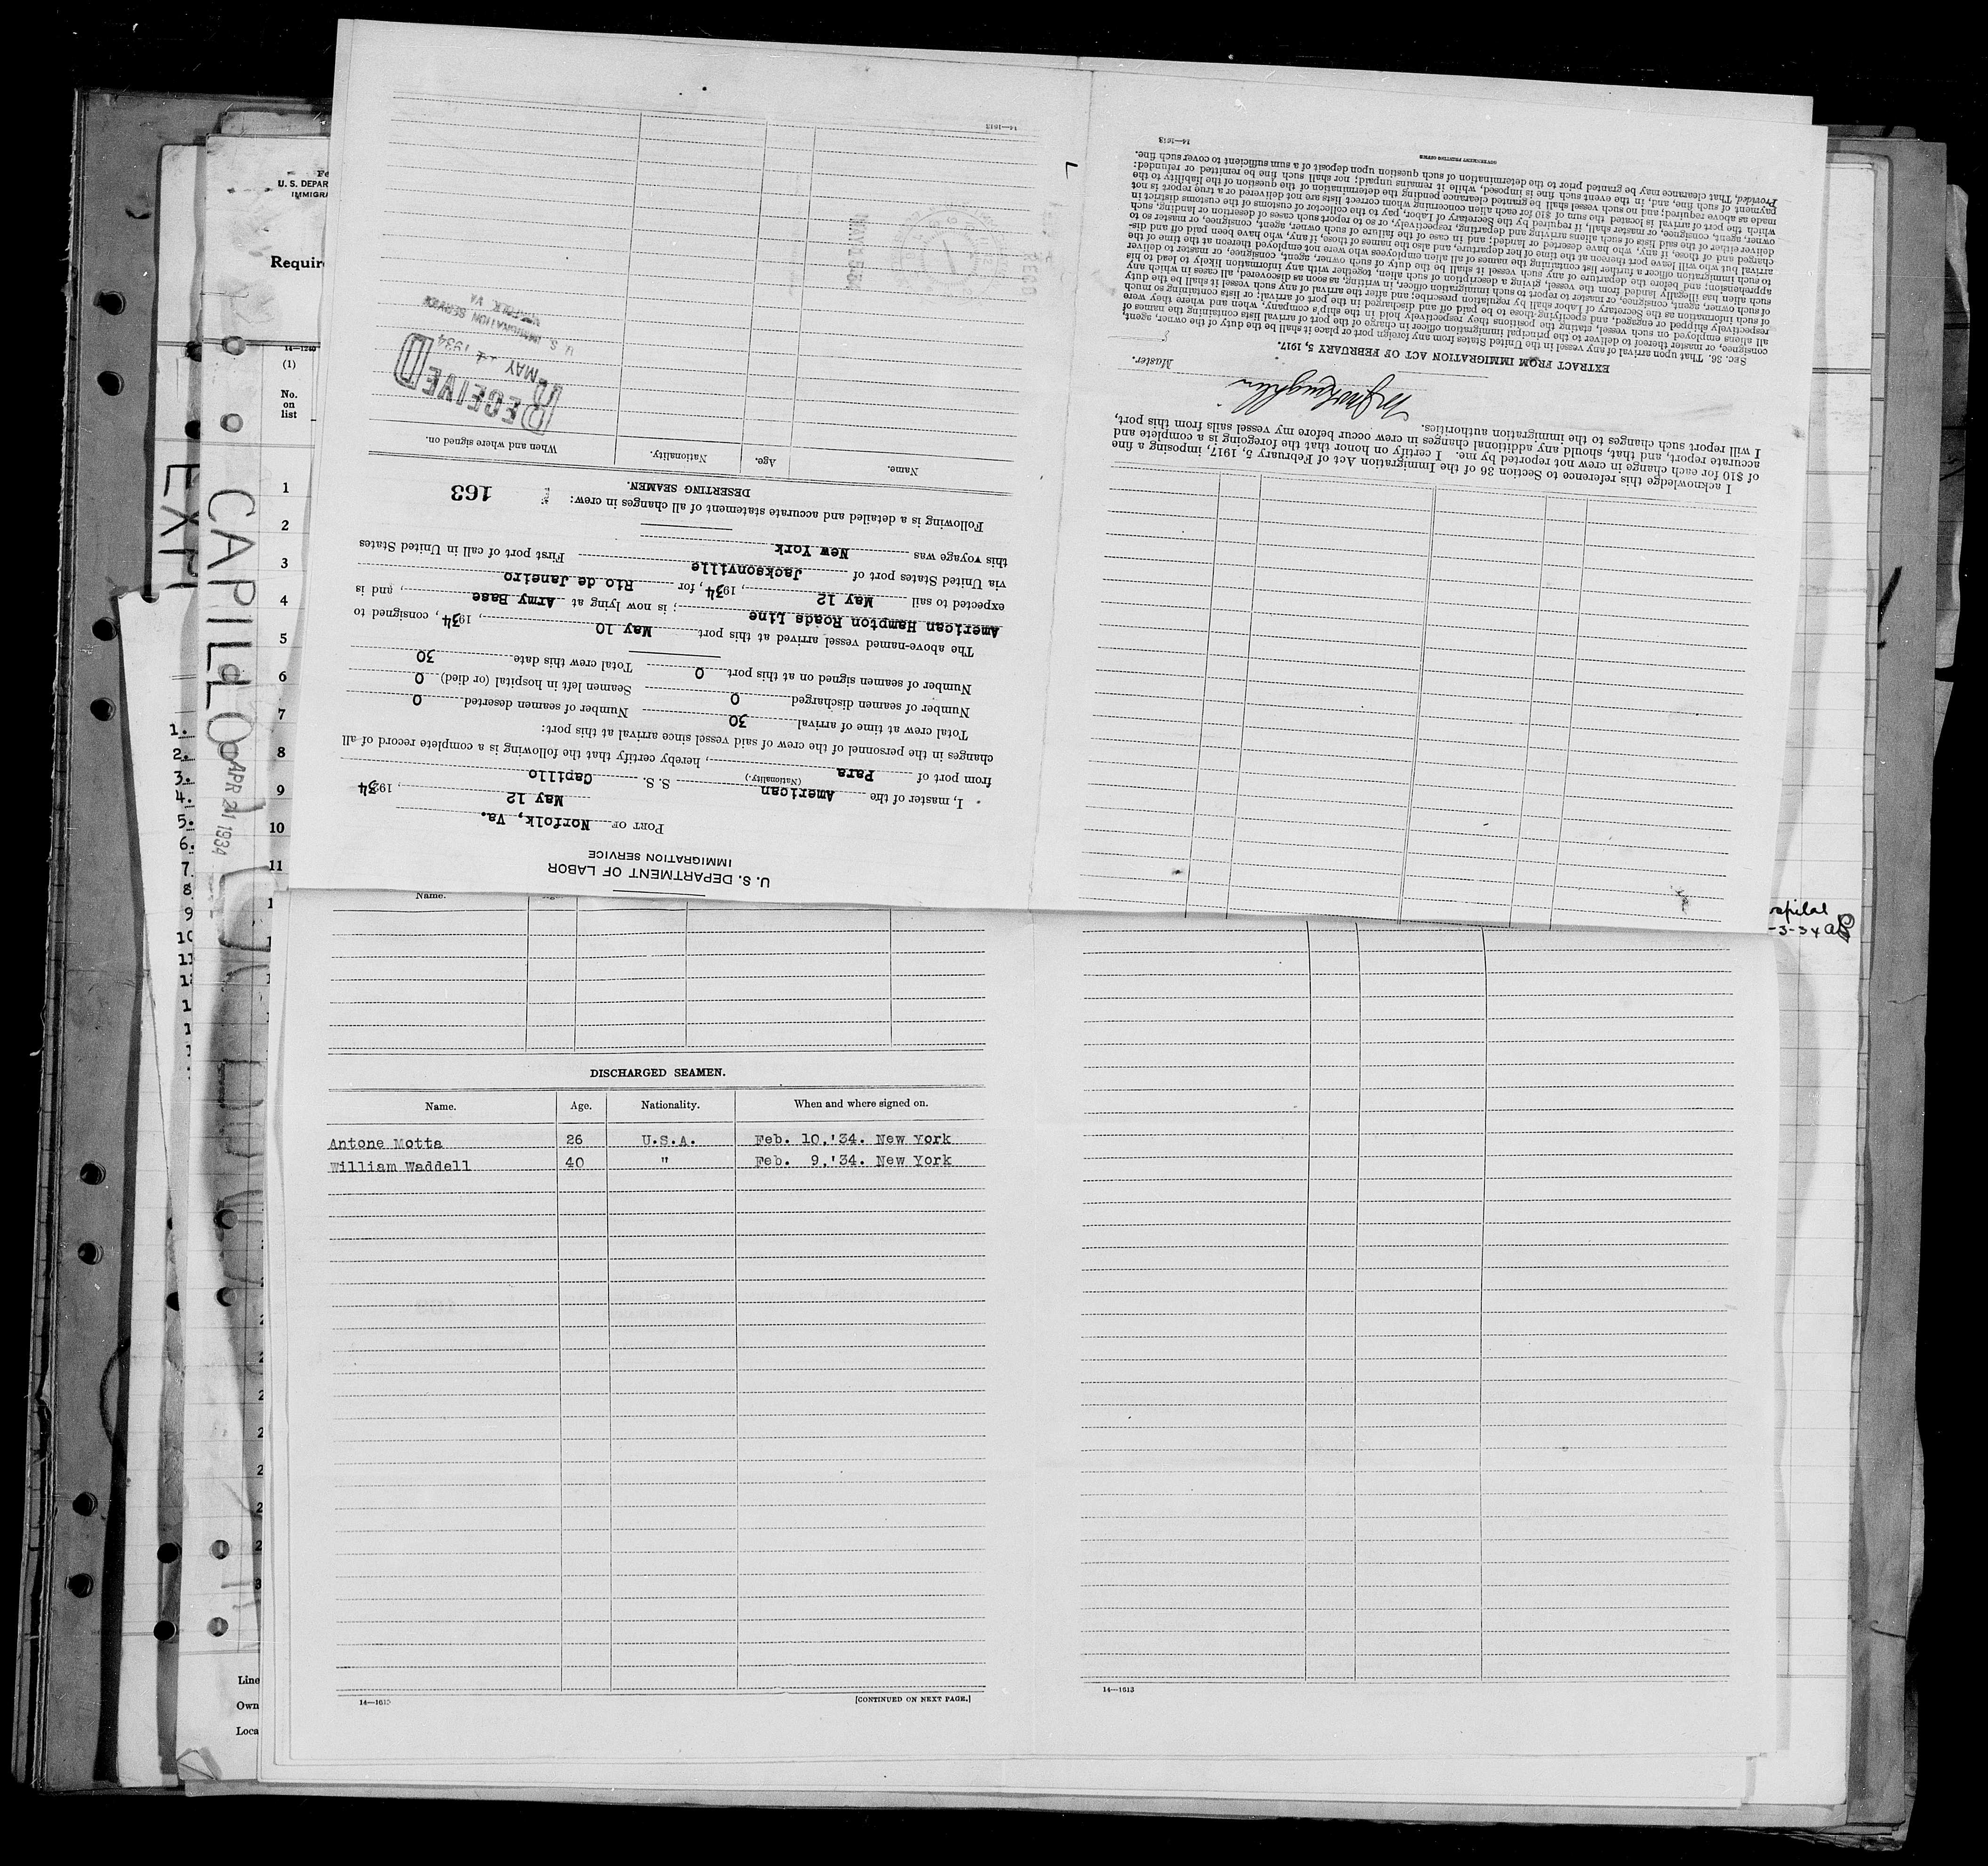 U. S. DEPARTMENT OF LABOR
IMMIGRATION SERVICE
PORT OF Norfolk, Va.
May 12, 1934
I, master of the American S. S. Capillo
(Nationality.)
from port of Para, hereby certify that the following is a complete record of all
changes in the personnel of the crew of said vessel since arrival at this port:
Total crew at time of arrival 30 Number of seamen deserted 0
Number of seamen discharged 0 Seamen left in hospital (or died) 0
Number of seamen signed on at this port 0 Total crew this date 30
The above-named vessel arrived at this port May 10, 1934, consigned to
American Hampton Roads Line; is now lying at Army Base, and is
expected to sail May 12, 1934, for Rio de Janeiro
via United States port of Jacksonville First port of call in United States
this voyage was New York
Following is a detailed and accurate statement of all changes in crew:
DESERTING SEAMEN.
163
Name. Age. Nationality. When and where signed on.
RECEIVED
MAY 14 1934
U. S. IMMIGRATION SERVICE
NORFOLK VA
14—1613
I acknowledge this reference to Section 36 of the Immigration Act of February 5, 1917, imposing a fine
of $10 for each change in crew not reported by me. I certify on honor that the foregoing is a complete and
accurate report, and that, should any additional changes in crew occur before my vessel sails from this port,
I will report such changes to the immigration authorities.
Master.
EXTRACT FROM IMMIGRATION ACT OF FEBRUARY 5, 1917.
SEC. 36. That upon arrival of any vessel in the United States from any foreign port or place it shall be the duty of the owner, agent,
consignee, or master thereof to deliver to the principal immigration officer in charge of the port of arrival lists containing the names of
all aliens employed on such vessel, stating the positions they respectively hold in the ship's company, when and where they were
respectively shipped or engaged, and specifying those to be paid off and discharged in the port of arrival; or lists containing so much
of such information as the Secretary of Labor shall by regulation prescribe; and after the arrival of any such vessel it shall be the duty
of such owner, agent, consignee, or master to report to such immigration officer, in writing, as soon as discovered, all cases in which any
such alien has illegally landed from the vessel, giving a description of such alien, together with any information likely to lead to his
apprehension; and before the departure of any such vessel it shall be the duty of such owner, agent, consignee, or master to deliver
to such immigration officer a further list containing the names of all alien employees who were not employed thereon at the time of the
arrival but who will leave port thereon at the time of her departure, and also the names of those, if any, who have been paid off and dis-
charged and of those, if any, who have deserted or landed; and in case of the failure of such owner, agent, consignee, or master so to
deliver either of the said lists of such aliens arriving and departing, respectively, or so to report such cases of desertion or landing, such
owner, agent, consignee, or master shall, if required by the Secretary of Labor, pay to the collector of customs of the customs district in
which the port of arrival is located the sum of $10 for each alien concerning whom correct lists are not delivered or a true report is not
made as above required; and no such vessel shall be granted clearance pending the determination of the question of the liability to the
payment of such fine, and, in the event such fine is imposed, while it remains unpaid; nor shall such fine be remitted or refunded:
Provided, That clearance may be granted prior to the determination of such question upon deposit of a sum sufficient to cover such fine.
GOVERNMENT PRINTING OFFICE 14—1613
U. S. DEPAR
IMMIGRA
Require
14—1240
(1)
No.
on
list
EXP
CAPILLO
APR 21 1934
1
2
3
4
5
6
7
8
9
10
11
1.
2.
3.
4.
5.
6.
7
8
9
Line
Own
Loca
Name.
DISCHARGED SEAMEN.
Name. Age. Nationality. When and where signed on.
Antone Motta 26 U.S.A. Feb. 10,'34. New York
William Waddell 40 " Feb. 9,'34. New York
14—1613 [CONTINUED ON NEXT PAGE.]
14—1613